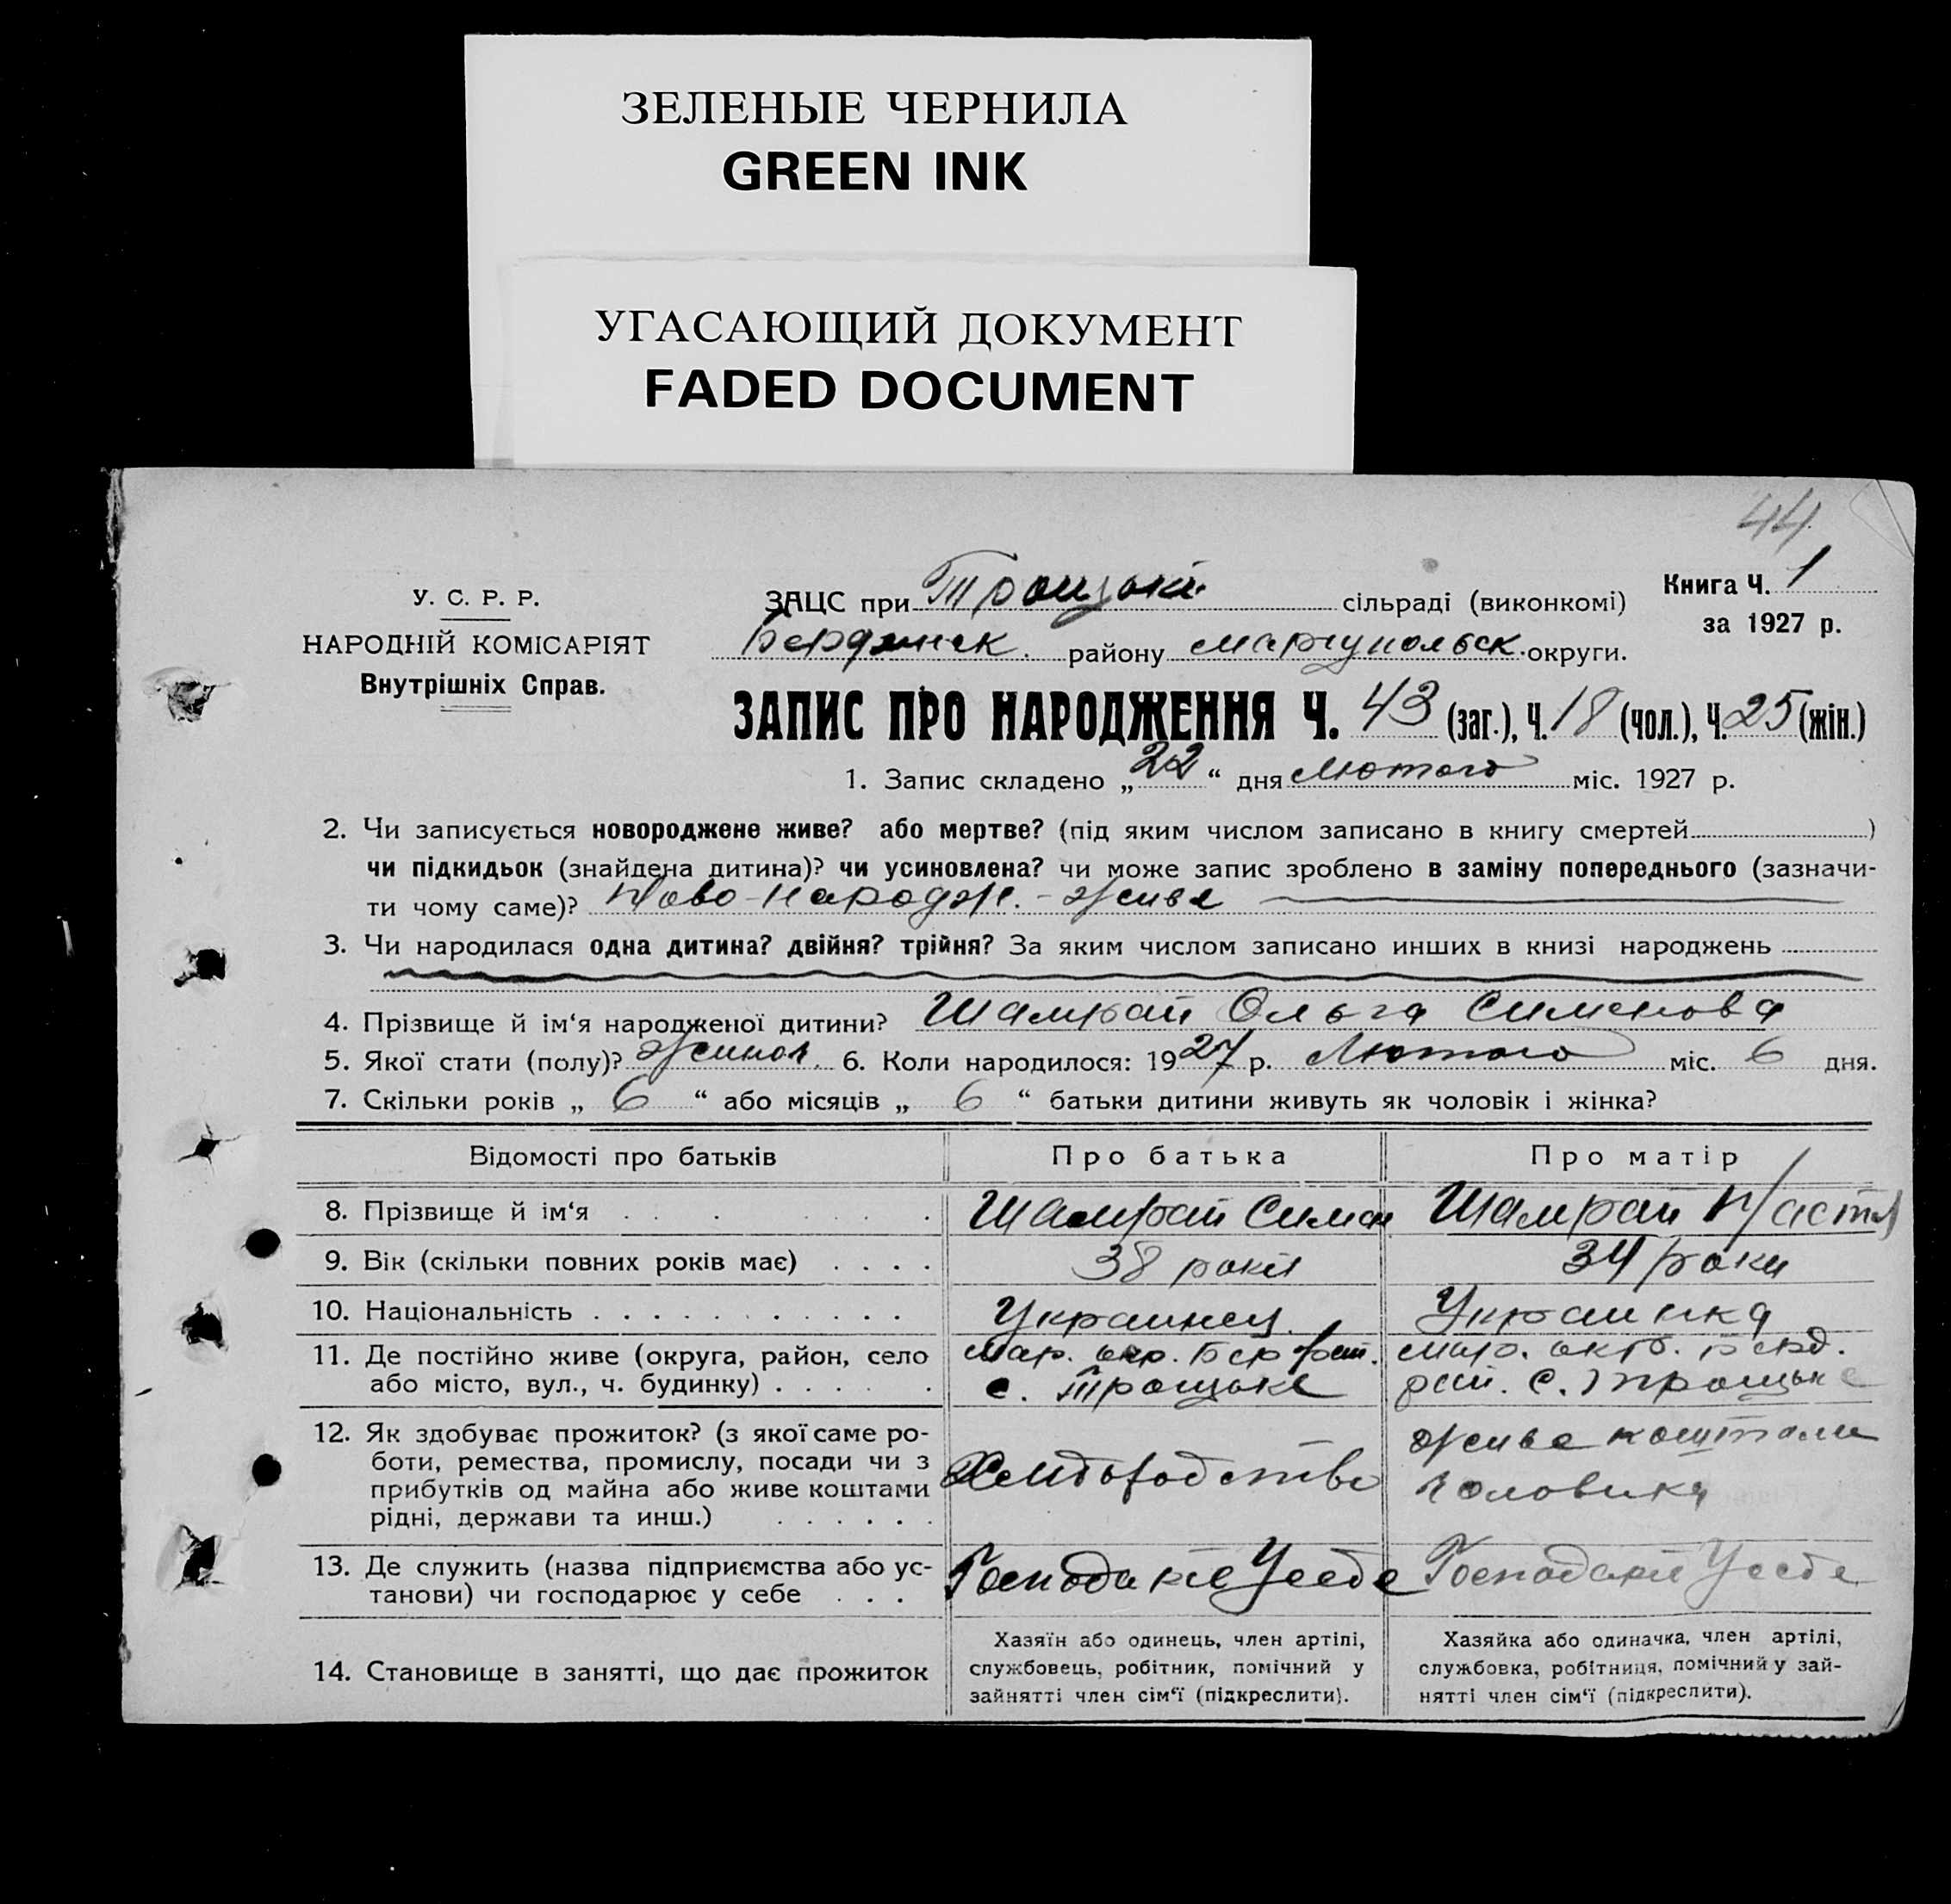 ЗЕЛЕНЫЕ ЧЕРНИЛА
GREEN INK
УГАСАЮЩИЙ ДОКУМЕНТ
FADED DOCUMENT
44
Книга Ч. 1
за 1927 р.
У. С. Р. Р.
НАРОДНІЙ КОМІСАРІЯТ
Внутрішніх Справ.
ЗАЦС при Троцькі сільраді (виконкомі)
Бердянск. району Маріупольск. округи.
ЗАПИС ПРО НАРОДЖЕННЯ Ч. 43 (заг.), Ч. 18 (чол.), Ч. 25 (жін.)
1. Запис складено „ 22 “ дня Лютого міс. 1927 р.
2. Чи записується новороджене живе? або мертве? (під яким числом записано в книгу смертей )
чи підкидьок (знайдена дитина)? чи усиновлена? чи може запис зроблено в заміну попереднього (зазначи-
ти чому саме)? Ново-народж. - живе
3. Чи народилася одна дитина? двійня? трійня? За яким числом записано инших в книзі народжень
4. Прізвище й ім‘я народженої дитини? Шамрай Ольга Сименова
5. Якої стати (полу)? жиноч. 6. Коли народилося: 1927 р. Лютого міс. 6 дня.
7. Скільки років „ 6 “ або місяців „ 6 “ батьки дитини живуть як чоловік і жінка?
Відомості про батьків Про батька Про матір
8. Прізвище й ім‘я Шамрай Симон Шамрай Настя
9. Вік (скільки повних років має) 38 роки 34 роки
10. Національність Украинец. Украинка
11. Де постійно живе (округа, район, село Мар. окр. Бер рай. Мар. окр. Берд.
або місто, вул., ч. будинку) с. Троцьке рай. с. Троцьке
12. Як здобуває прожиток? (з якої саме ро-
боти, ремества, промислу, посади чи з
прибутків од майна або живе коштами
рідні, держави та инш.)
Хлибородство
живе коштами
чоловика
13. Де служить (назва підприємства або ус-
танови) чи господарює у себе
Господарює У себе Господарює У себе
14. Становище в занятті, що дає прожиток
Хазяїн або одинець, член артілі,
службовець, робітник, помічний у
зайнятті член сім‘ї (підкреслити).
Хазяйка або одиначка, член артілі,
службовка, робітниця, помічний у зай-
нятті член сім‘ї (підкреслити).